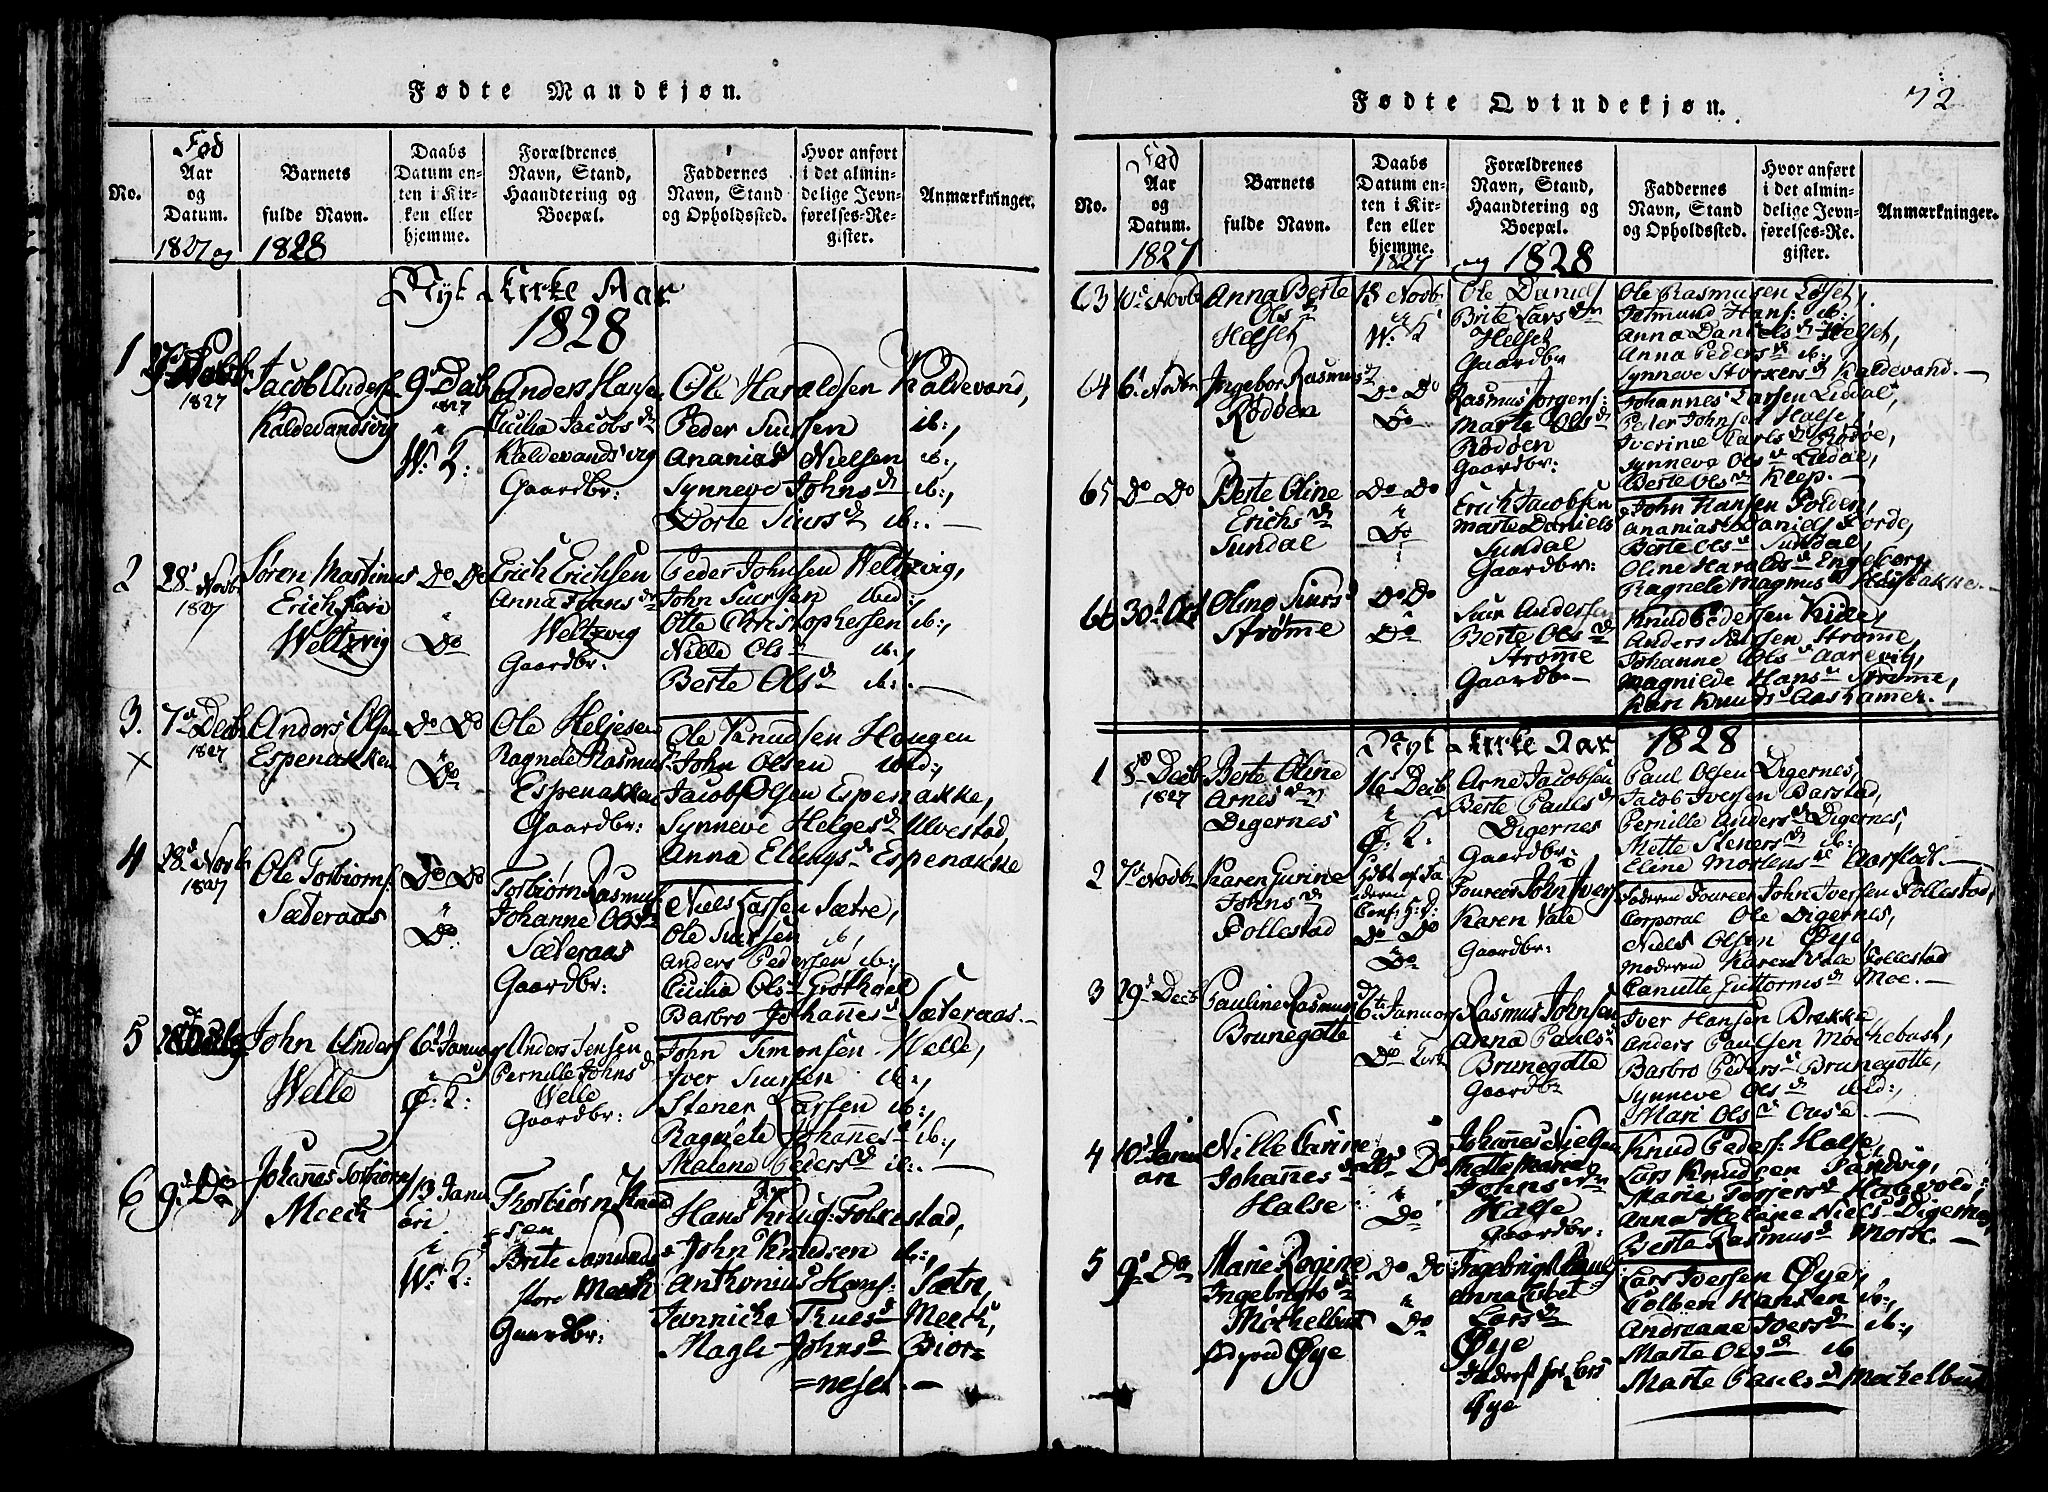 Fødte Mandkjøn.
No.
Fød
Aar
og
Datum.
1827 og
Barnets
fulde Navn.
1828
Daabs
Datum en-
ten i Kir-
ken eller
hjemme.
Forældrenes
Navn, Stand,
Haandtering og
Boepæl.
Faddernes
Navn, Stand
og Opholdssted.
Hvor anført
i det almin-
delige Jevn-
førelses-Re-
gister.
Anmærkninger.
Nyt Kirke Aar
1828
1
1827
Jacob Anders
Kaldevandsvig
9d Decb
1827
i
W: K:
Anders Hansen
Cicilia Jacobsdr
Kaldevandsvig
Gaardbr:
Ole Haraldsen Kaldevand,
Peder Siursen ib:,
Ananias Nielsen ib:,
Synneve Johnsd ib:,
Dorte Siursd ib:. —
2
28d Novbr
1827
Søren Martinus
Erichsen
Weltzvig
Do Do
i
Do
Erich Erichsen
Anna Hansdr
Weltzvig
Gaardbr:
Peder Johnsen Weltzvig,
John Siursen ibid:,
Otte Christophersen ib:,
Nille Olsd ib:,
Berte Olsd ib:. —
3.
×
7d Decbr
1827
Anders Olsen
Espenakken
Do Do
i
Do
Ole Heljesen
Ragnele Rasmusd
Espenakken
Gaardbr:
Ole Knudsen Hougen
John Olsen ibid:,
Jacob Olsen Espenakke,
Synneve Helgesd Ulvestad,
Anna Ellingsd Espenakke
4
28d Novbr
1827
Ole Torbiørns
Sæteraas
Do Do
i
Do:
Torbiørn Rasmus
Johanne Olsd
Sæteraas
Gaardbr:
Niels Larsen Sætre,
Ole Siursen ib,
Anders Pedersen ib:,
Cicilia Olsd Grøthaal
Barbro Johannesd Sæteraas. —
5
John Anders
Welle
6d Januar
i
Ø: K:
Anders Jensen
Pernille Johnsd
Welle
Gaardbr:
John Simonsen Welle,
Iver Siursen ib:,
Stener Larsen ib:,
Ragnete Johannesd ib:,
Malene Pedersd ib:. —
6
9d Do
Johannes Torbiørn
Meek
13 Janu
ari
i
W: K:
Thorbiørn Knud
sen
Brite Samunds
store Meek
Gaardbr:
Hans Knuds: Folkestad,
John Knudsen ib:,
Anthonius Hans: Sætre,
Jannicke Truesd Meek,
Magli Johnsd Bior=
=neset. —
Fødte Qvindekjøn.
72
No.
Fød
Aar
og
Datum.
1827
Barnets
fulde Navn.
Daabs
Datum en-
ten i Kir-
ken eller
hjemme.
1827
Forældrenes
Navn, Stand,
Haandtering og
Boepæl.
og 1828
Faddernes
Navn, Stand
og Opholdssted.
Hvor anført
i det almin-
delige Jevn-
førelses-Re-
gister.
Anmærkninger.
63
Novbr
Anna Berte
Olsdr
Helset
18 Novbr
i
W: K
Ole Daniels
Brite Larsdr
Helset
Gaardbr
Ole Rasmusen Løset,
Jetmund Hans: ib:,
Anna Danielsd Helset,
Anna Pedersd ib:,
Synneve Storkersd Kaldevand. —
64
6d Novbr
Ingebor Rasmusd
Rødøen
Do Do
i
Do
Rasmus Jørgens:
Marte Olsd
Rødøen
Gaardbr:
Johannes Larsen Liddal,
Peder Johnsen Halse,
Iverine Carlsd Rødøe,
Synneve Olsd Lidal,
Berte Olsd Kleep. —
65
Do Do
Berte Oline
Erichsdr
Sundal
Do Do
i
Do
Erich Jacobsen
Marte Daniels
Sundal
Gaardbr:
John Hansen Folden,
Ananias Daniels Lorde,
Berte Olsd Sundal,
Oline Haraldsd Engeborg,
Ragnele Magnusd Hafstakke. —
66
30d Oct
Oline Siursd
Strøme
Do Do
i
Do
Siur Anderssen
Berte Olsd
Strøme
Gaardb —
Knud Pedersen Kiile,
Anders Siursen Strøme,
Johanne Olsd Aarevig,
Magnilde Hansd Strøme,
Kari Knudsd Aashamer. —
Nyt Kirke Aar 1828
1
5d Decbr
1827
Berte Oline
Arnesdr
Digernes
16 Decb
i
Ø: K:
Arne Jacobsen
Berte Paulsd
Digernes
Gaardbr:
Paul Olsen Digernes,
Jacob Iversen Barstad,
Pernille Andersd Digernes,
Mette Stenersd ib:
Eline Mortensd Aarstad. —
2
7d Novbr
Karen Gurine
Johnsd
Follestad
Hdbt af Fa
deren
Conf: H: D:
Do Do
Do
Foureer John Ivers
Karen Vale
Gaardbr:
Faderen Foureer John Iversen Follestad,
Corporal Ole Digernes,
Niels Olsen Øye
Moderen Karen Vale Follestad
Canutte Guttormsd Moe. —
3
29d Decb
Pauline Rasmusd
Brunegøtte
6te Januar
i
Do Kirk
Rasmus Johnsen
Anna Paulsd
Brunegøtte
Gaardbr
Iver Hansen Brække,
Anders Paulsen Mochebust,
Barbro Pedersd Brunegøtte,
Synneve Olsd ibid:,
Mari Olsd Ouse. —
4
10d Janu
ari
Nille Carine
Johannesdr
Halse
Do
i
Do
Johannes Nielsen
Mette Maria
Johnsdr
Halse
Gaardbr:
Knud Peders: Halse,
Lars Knudsen Sandvig,
Marie Torjersd Hagvold,
Anna Helene Niels Digernes,
Berte Rasmusd Mork. —
5
9d Do
Marie Rogine
Ingebrigtsd
Møchelbust
fød paa Øye
Do Do
i
Do
Ingebrigt Pauls
Anna Lisbet
Larsdr
Øye
Inderst hos Lars
Øye
Lars Iversen Øye,
Colben Hansen ib:,
Andreane Iversd ib:,
Marte Olsd ib
Marte Paulsd Mochelbust